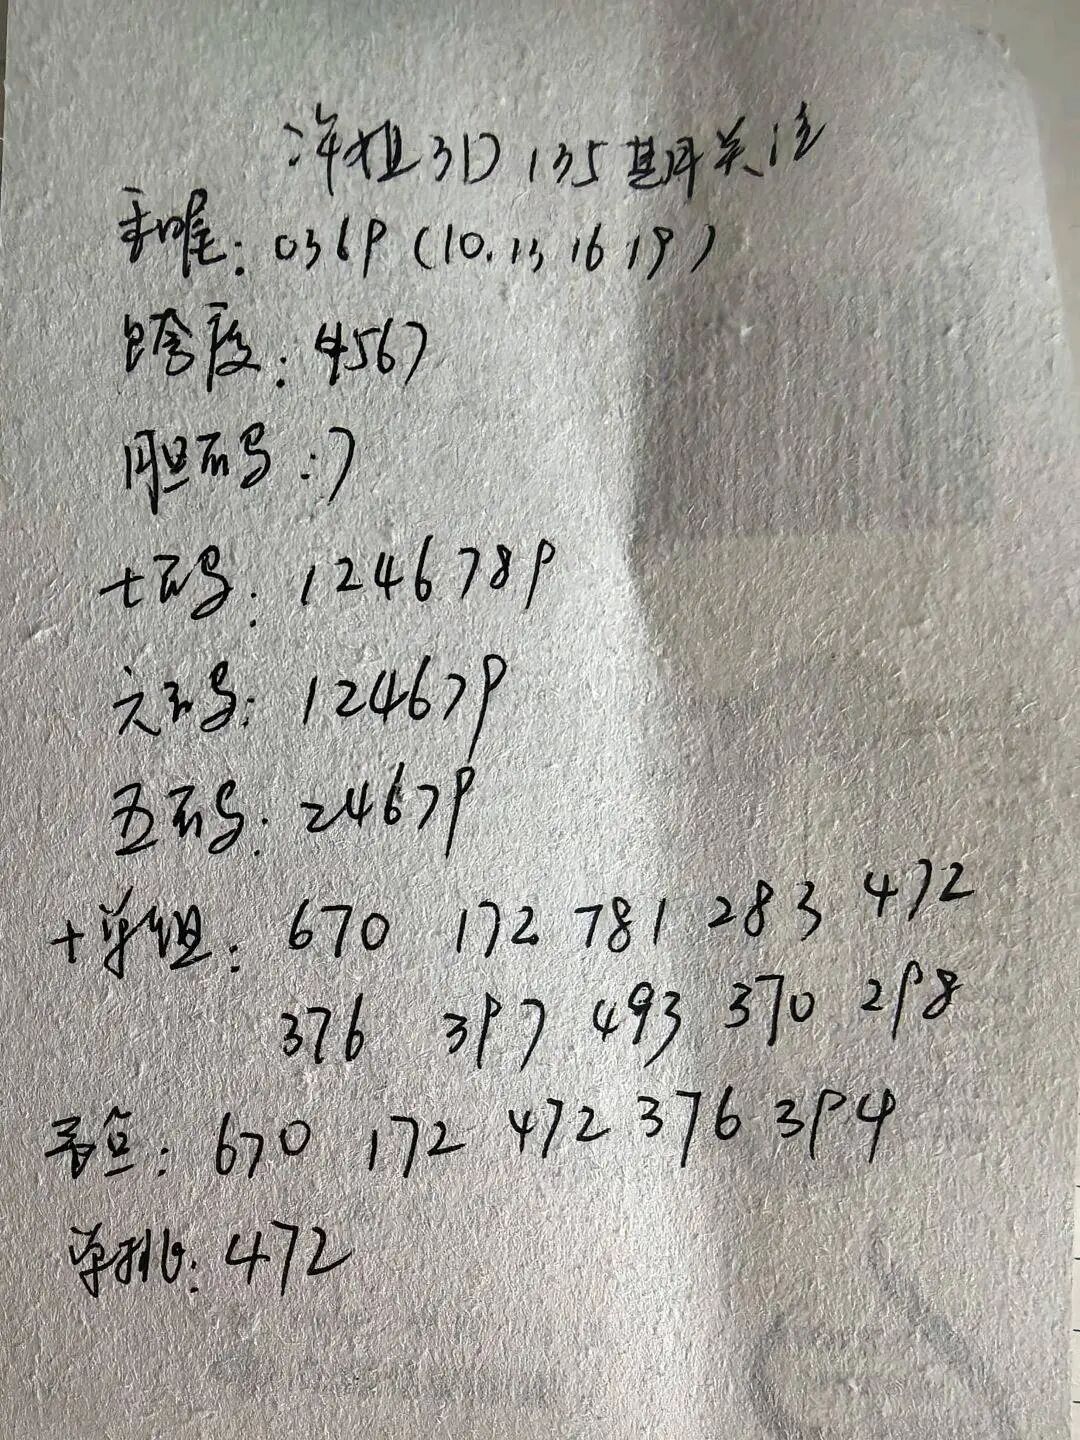 3D 135期关注
和尾：0369（10.13 16 19）
跨度：4567
胆码：7
七码：1246789
六码：124679
五码：24679
十单组：670 172 781 283 472
376 397 493 370 298
670 172 472 376 394
单挑：472